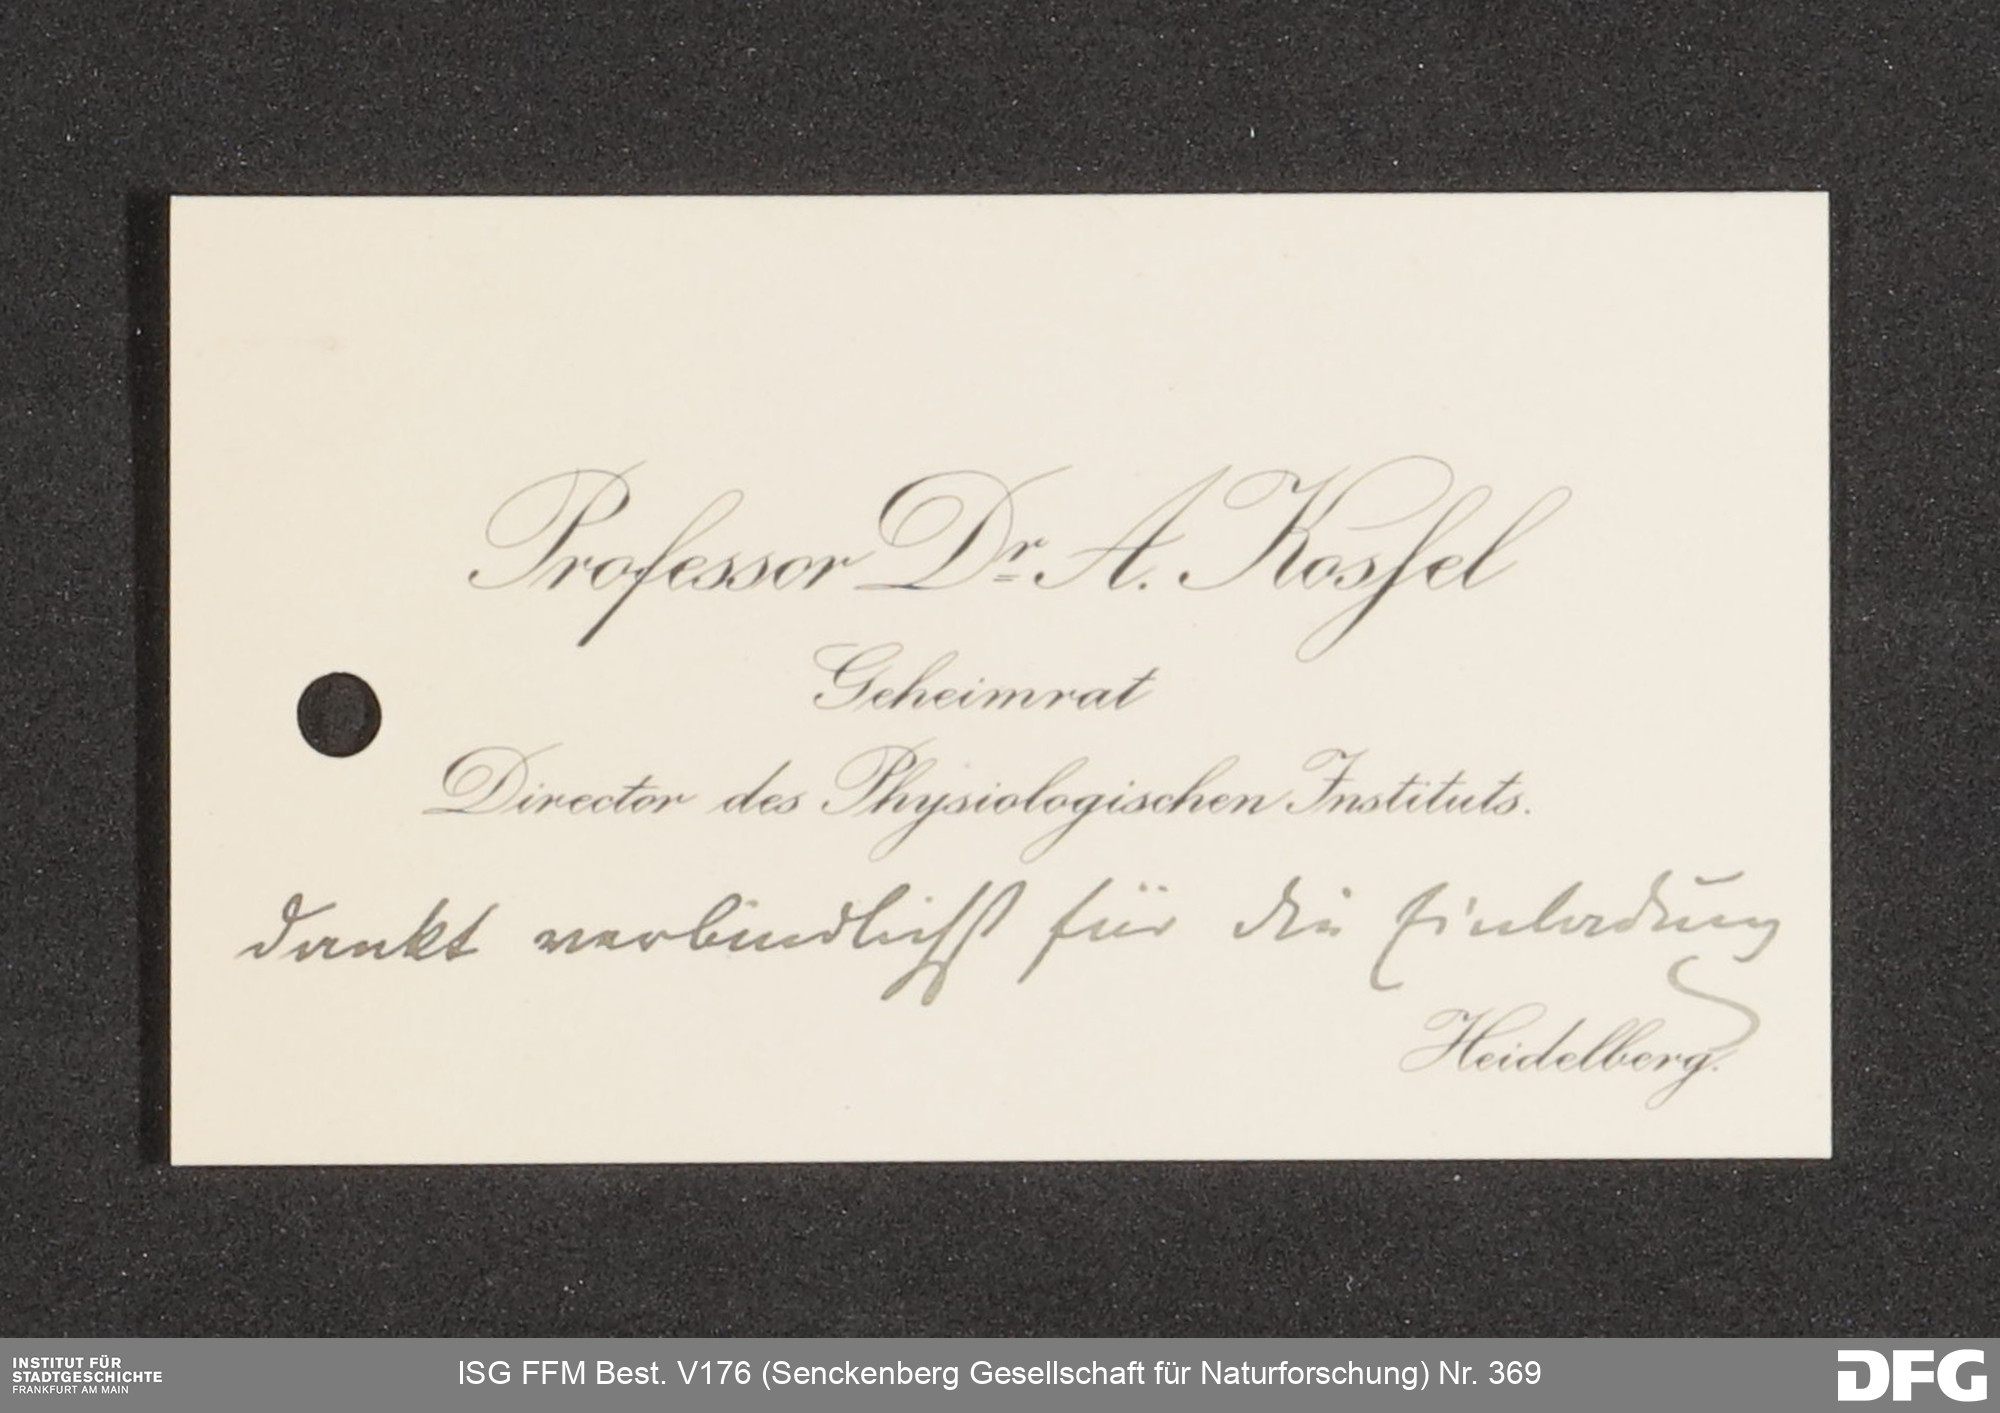 Professor Dr. A. Kossel
Geheimrat
Director des Physiologischen Instituts.
dankt verbindlichst für die Einladung
Heidelberg.
INSTITUT FÜR
STADTGESCHICHTE
FRANKFURT AM MAIN
ISG FFM Best. V176 (Senckenberg Gesellschaft für Naturforschung) Nr. 369
DFG